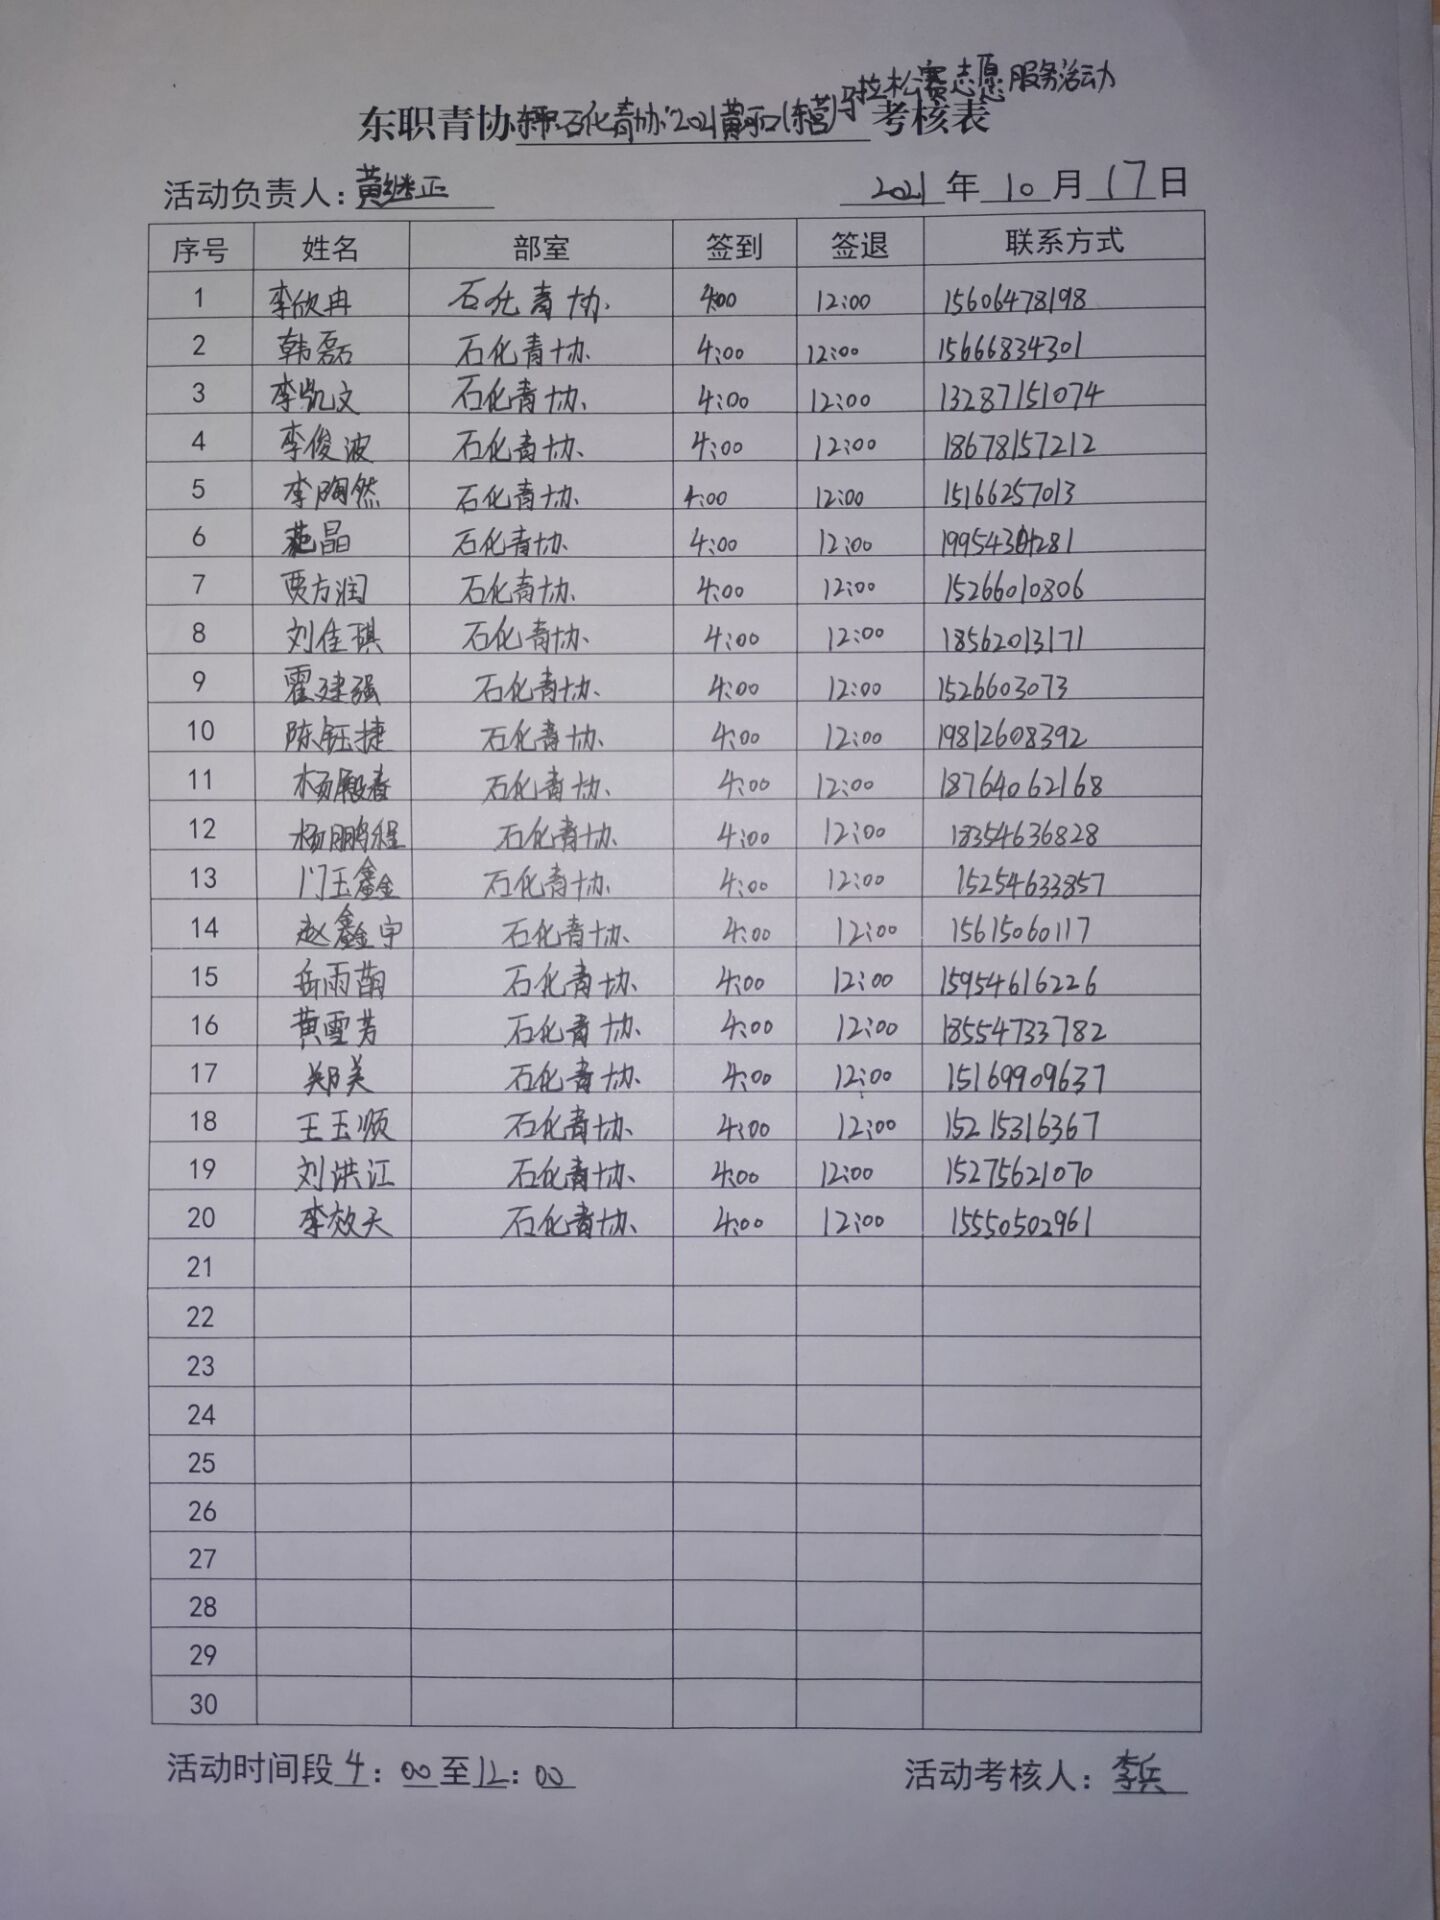 拉松赛志愿服务活动
东职青协石化青协"2021黄河口(东营)马考核表
活动负责人:黄继正 2021年10月17日
序号 姓名 部室 签到 签退 联系方式
1 李欣冉 石化青协 4:00 12:00 15606478198
2 韩磊 石化青协 4:00 12:00 15666834301
3 李凯文 石化青协 4:00 12:00 13287151074
4 李俊波 石化青协 4:00 12:00 18678157212
5 李陶然 石化青协 4:00 12:00 15166257013
6 晶 石化青协 4:00 12:00
7 贾方润 石化青协 4:00 12:00 15266010806
8 刘佳琪 石化青协 4:00 12:00 18562013171
9 霍建强 石化青协 4:00 12:00 1526603073
10 陈钰捷 石化青协 4:00 12:00 19812608392
11 杨殿春 石化青协 4:00 12:00 18764062168
12 杨鹏程 石化青协 4:00 12:00 18354636828
13 门玉鑫 石化青协 4:00 12:00 15254633857
14 赵鑫宇 石化青协 4:00 12:00 15615060117
15 岳雨萌 石化青协 4:00 12:00 15954616226
16 黄雪芳 石化青协 4:00 12:00 18554733782
17 郑美 石化青协 4:00 12:00 15169909637
18 王玉顺 石化青协 4:00 12:00 15215316367
19 刘洪江 石化青协 4:00 12:00 15275621070
20 李效天 石化青协 4:00 12:00 15550502961
21
22
23
24
25
26
27
28
29
30
活动时间段4:00至12:00 活动考核人:李兵